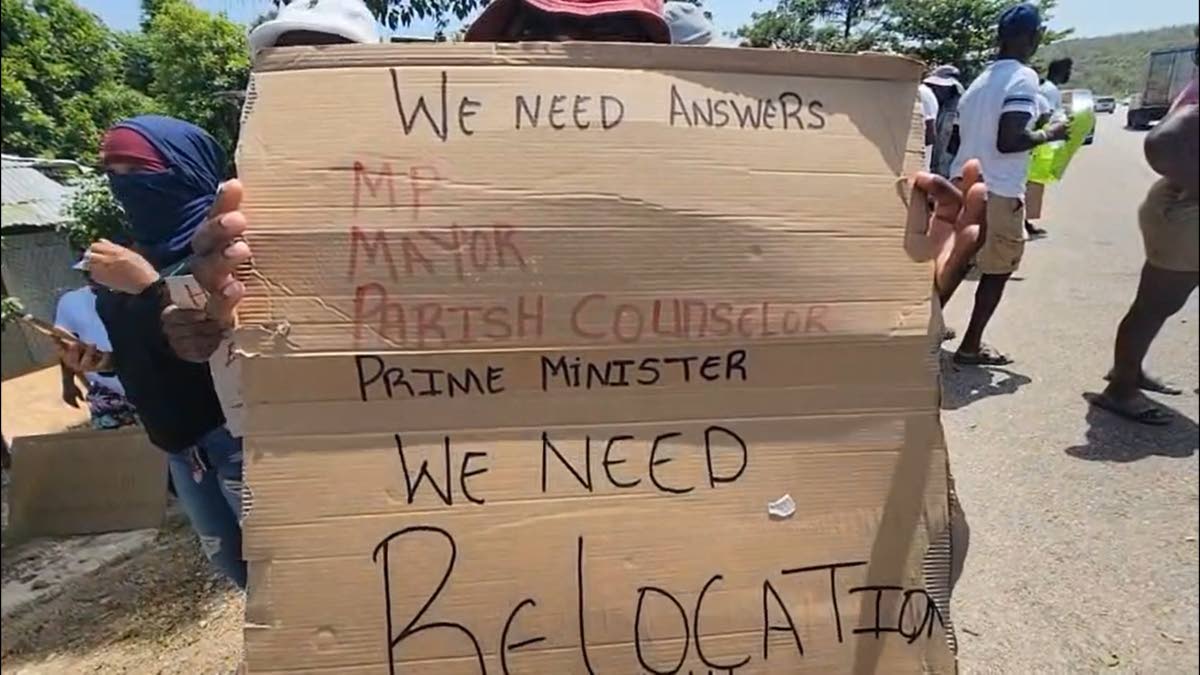 WE NEED ANSWERS
MP
MAYOR
PARISH COUNSELOR
PRIME MINISTER
WE NEED
RELOCATION